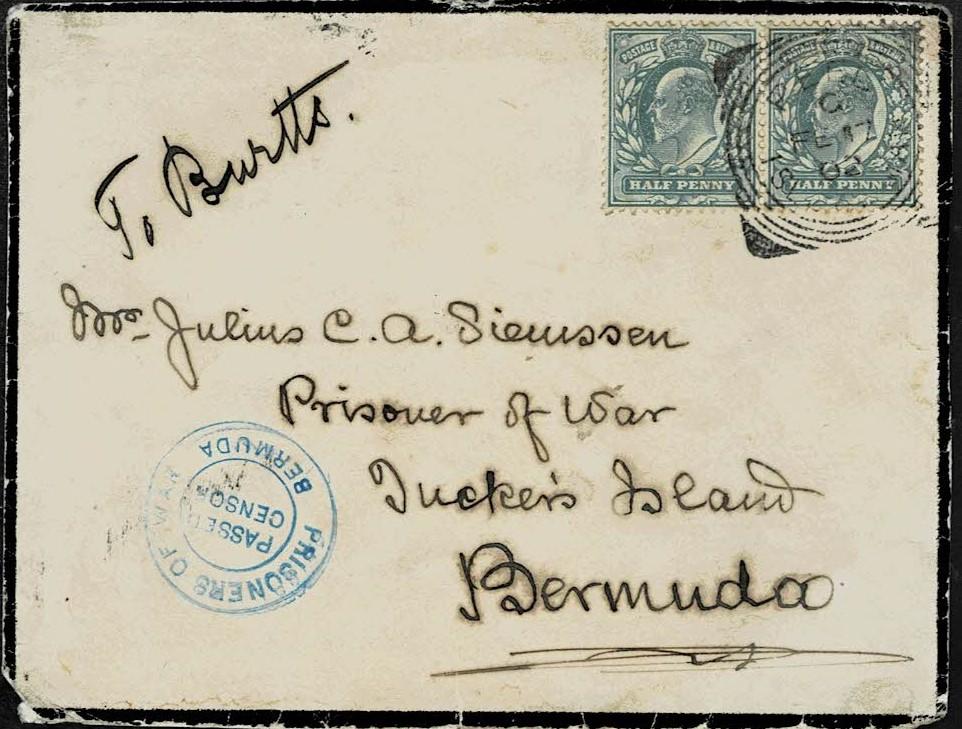 POSTAGE
HALF PENNY
POSTAGE
HALF PENNY
T. Burtts.
Mrs. Julius C. A. Siemssen
Prisoner of War
Tucker's Island
Bermuda
PRISONERS OF WAR
BERMUDA
PASSED
CENSOR